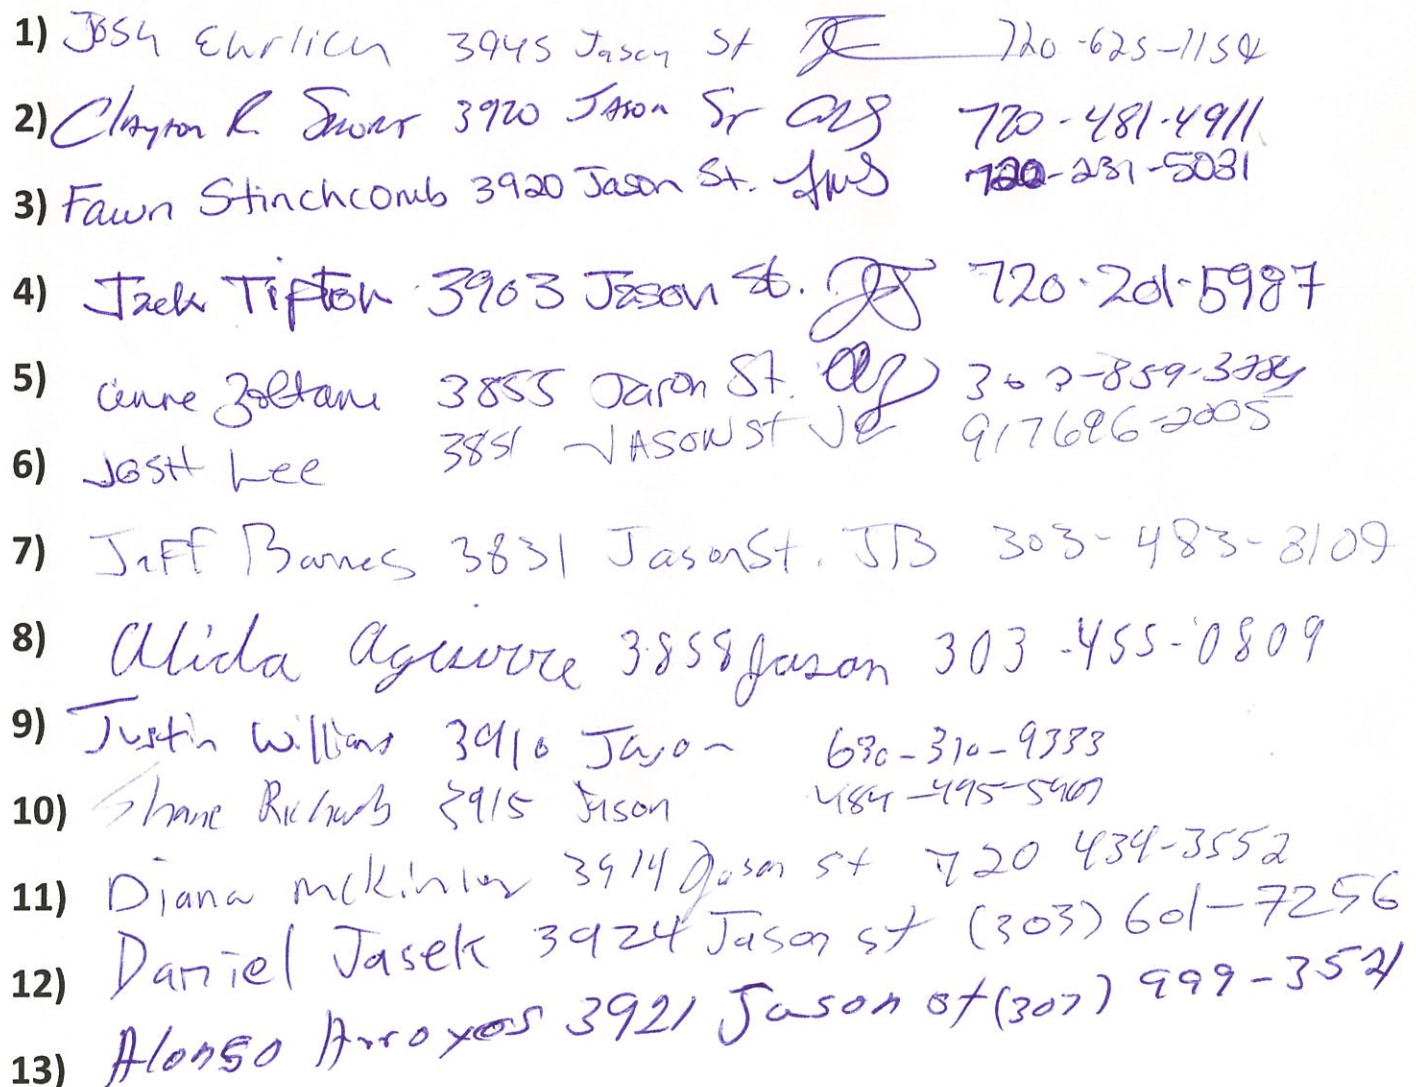 1) Josh Ehrlich 3945 Jason St JE 720-625-1154
2) Clayton R. 3920 Jason St CRS 720-481-4911
3) Fawn Stinchcomb 3920 Jason St. FMS 720-231-5031
4) Jack Tipton 3903 Jason St. JT 720-201-5987
5) Anne Zoltani 3855 Jason St. AZ
6) Josh Lee 3851 Jason St JL 917 696-2005
7) Jeff Barnes 3831 Jason St. JB 303-483-3109
8) Alida Aguirre 3858 Jason 303-455-0809
9) Justin Williams 3910 Jason 630-310-9333
10) Shane Richards 3915 Jason
11) Diana McKinley 3914 Jason St 720 434-3552
12) Daniel Jasek 3924 Jason st (303) 601-7256
13) Alonso Arroyos 3921 Jason st (307) 999-3521